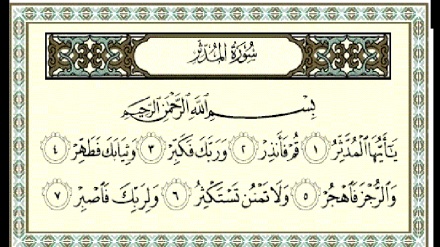 سُورَةُ المُدَّثِّر
بِسْمِ اللَّهِ الرَّحْمَنِ الرَّحِيمِ
يَٰٓأَيُّهَا ٱلْمُدَّثِّرُ ١ قُمْ فَأَنذِرْ ٢ وَرَبَّكَ فَكَبِّرْ ٣ وَثِيَابَكَ فَطَهِّرْ ٤
وَٱلرُّجْزَ فَٱهْجُرْ ٥ وَلَا تَمْنُن تَسْتَكْثِرُ ٦ وَلِرَبِّكَ فَٱصْبِرْ ٧